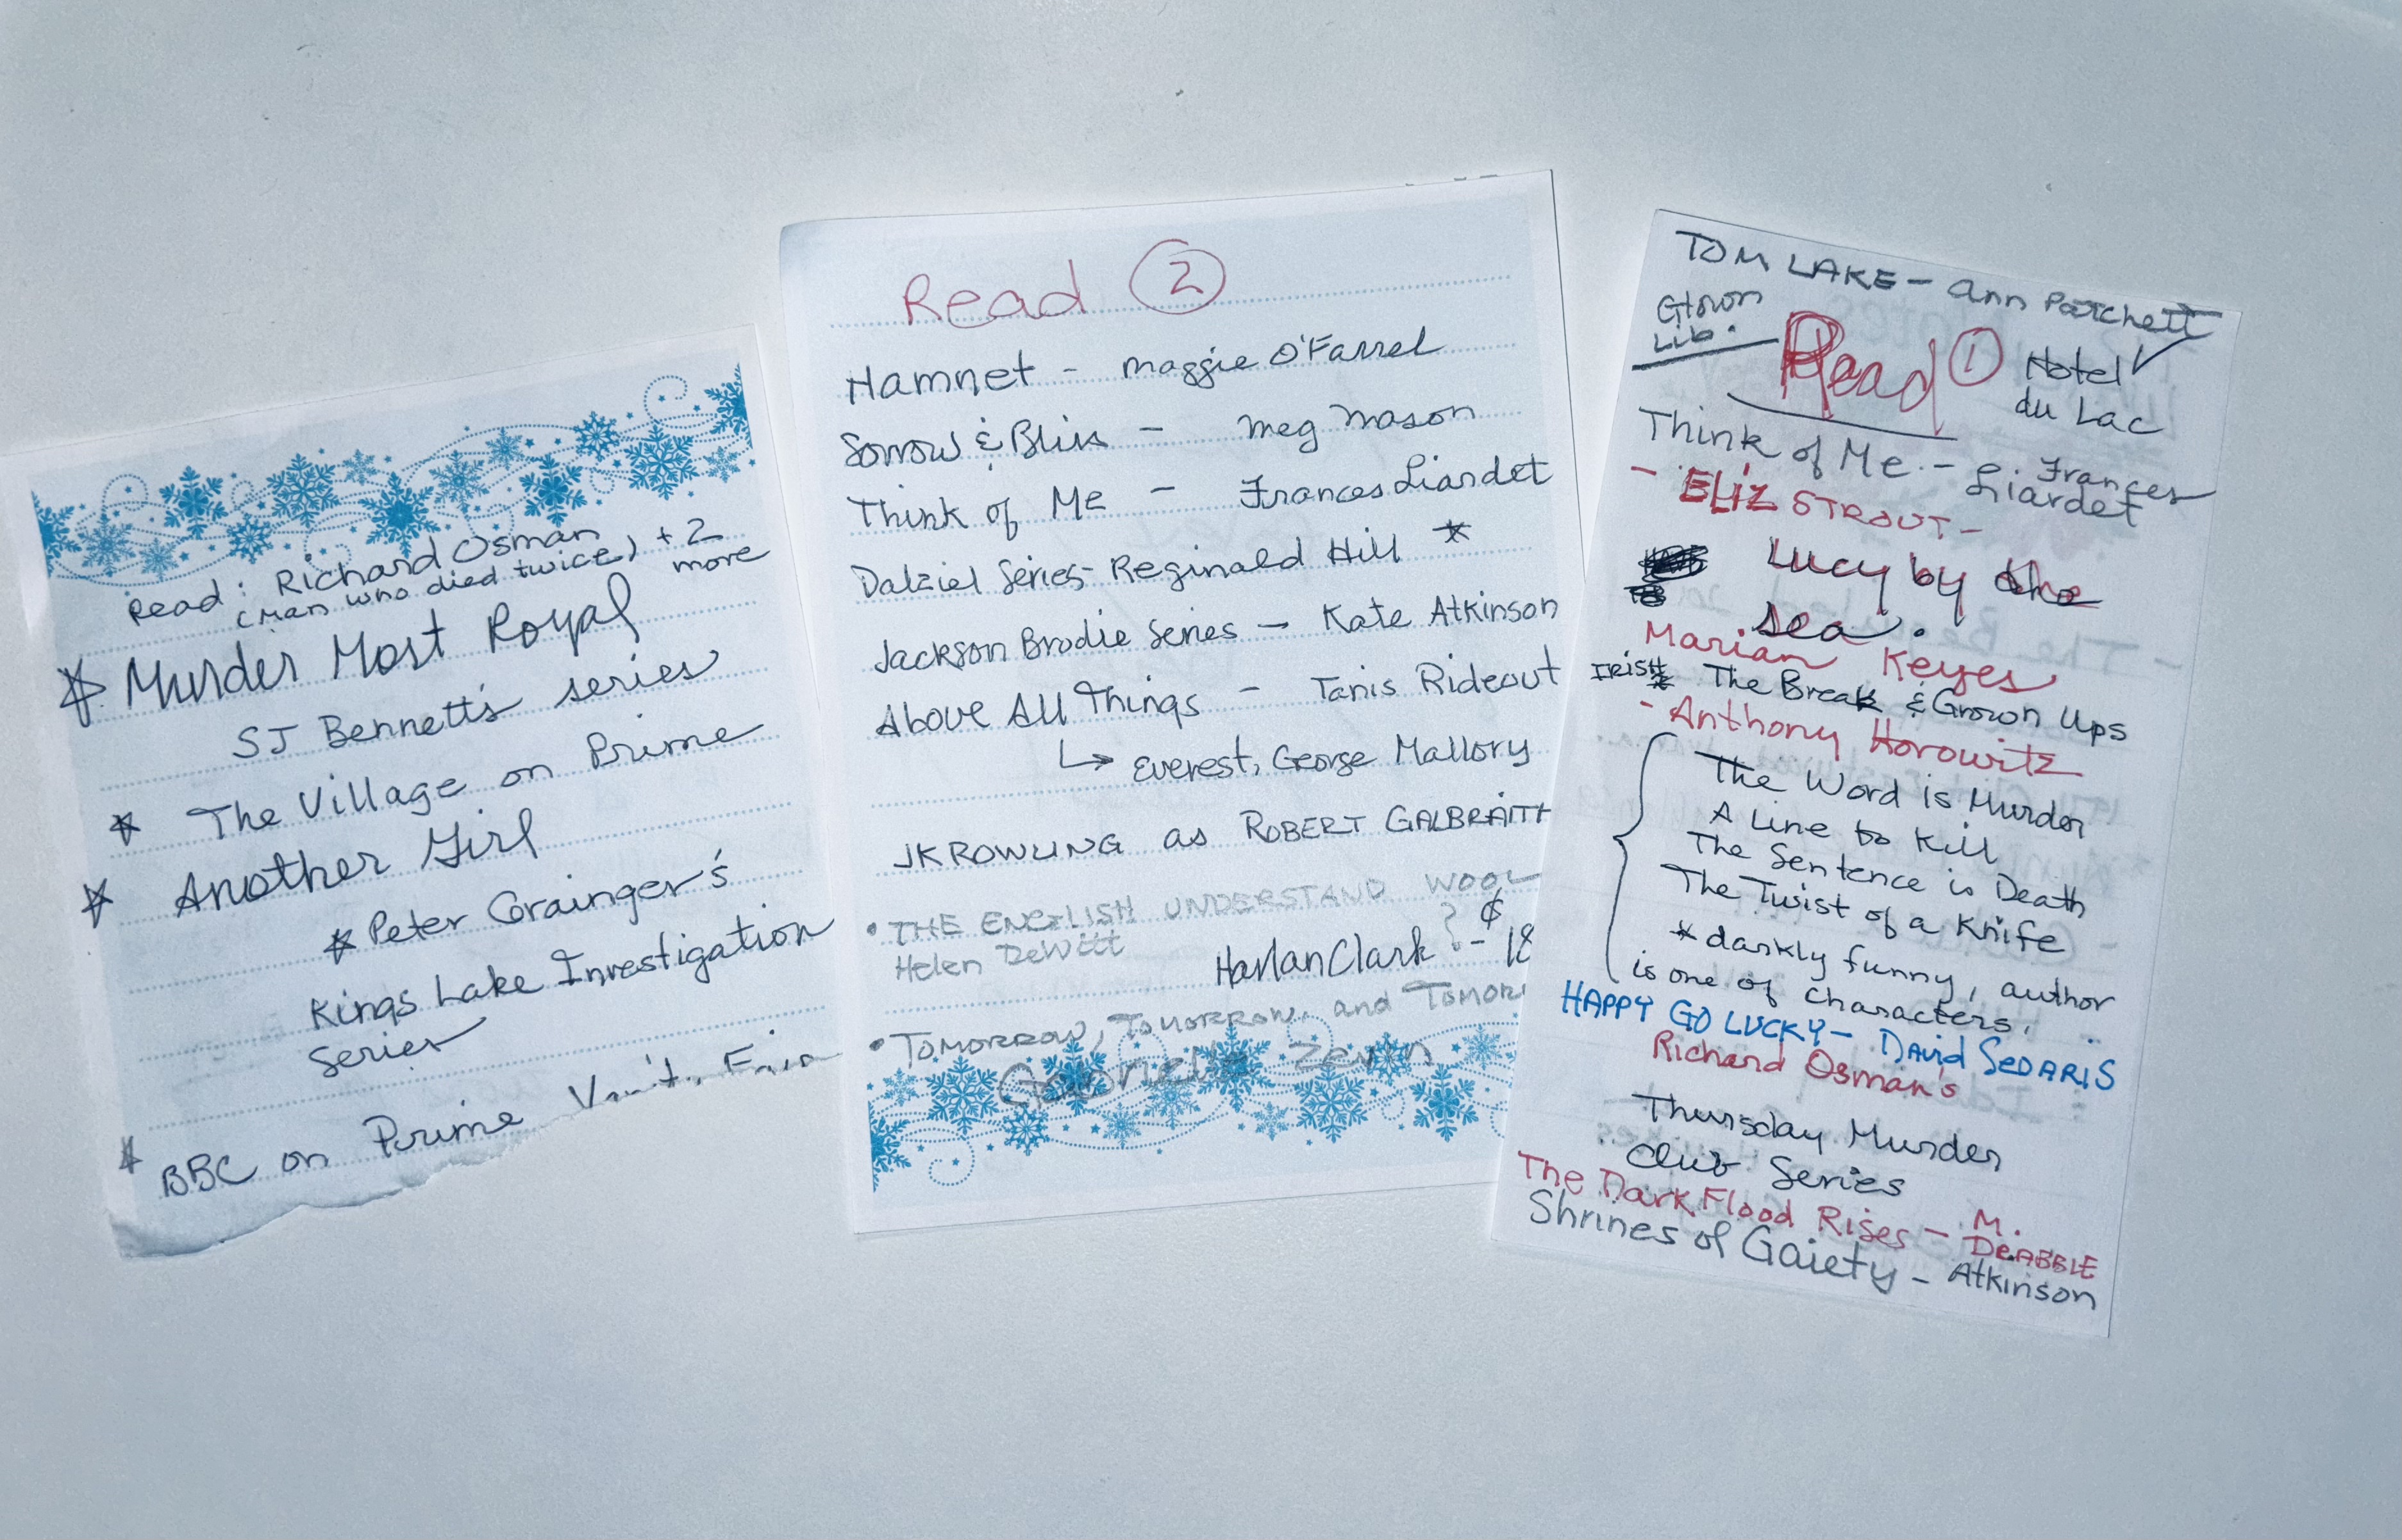 Read: Richard Osman
(Man who died twice) + 2
more
Murder Most Royal
SJ Bennett's series
The Village on Prime
Another Girl
Peter Grainger's
Kings Lake Investigation
Series
BBC on Prime
Read 2
Hamnet - Maggie O'Farrel
Sorrow & Bliss - Meg Mason
Think of Me - Frances Liardet
Dalziel Series - Reginald Hill *
Jackson Brodie Series - Kate Atkinson
Above All Things - Tanis Rideout
↳ Everest, George Mallory
JK ROWLING as ROBERT GALBRAITH
• THE ENGLISH UNDERSTAND WOOL
Helen DeWitt
Harlan Clark ? - 18
• Tomorrow, Tomorrow, and Tomor
Gabrielle Zevin
TOM LAKE - Ann Patchett
Gtown
Lib.
Read 1
Hotel ✓
du Lac
Think of Me - Frances
Liardet
- ELIZ STROUT -
Lucy by the
sea.
Marian Keyes
IRISH * The Break & Grown Ups
- Anthony Horowitz
The Word is Murder
A Line to Kill
The Sentence is Death
The Twist of a Knife
* darkly funny, author
is one of characters.
HAPPY GO LUCKY - DAVID SEDARIS
Richard Osman's
Thursday Murder
Club Series
The Dark Flood Rises - M.
DRABBLE
Shrines of Gaiety - Atkinson